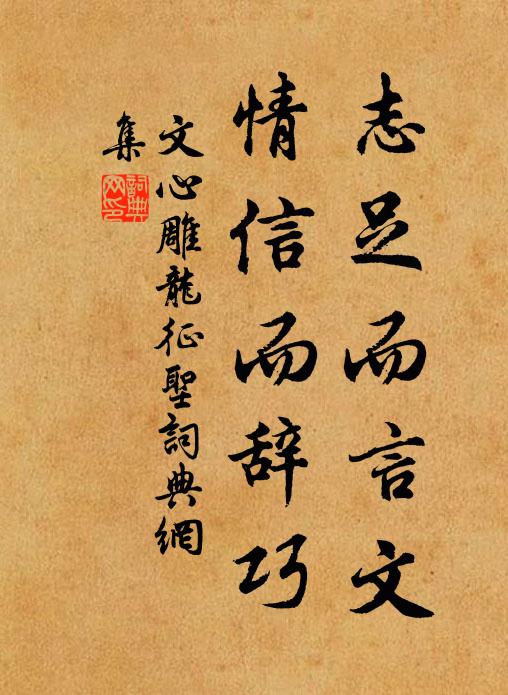 志足而言文
情信而辞巧
文心雕龍征聖詞典網
集
詞典
网印